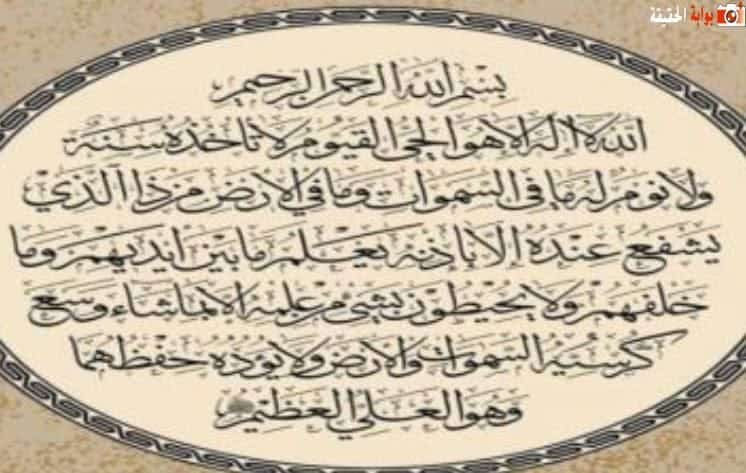 بوابة الحقيقة
بسم الله الرحمن الرحيم
الله لا اله الا هو الحي القيوم لا تاخذه سنة
ولا نوم له ما في السموات وما في الارض من ذا الذي
يشفع عنده الا باذنه يعلم ما بين ايديهم وما
خلفهم ولا يحيطون بشئ من علمه الا بما شاء وسع
كرسيه السموات والارض ولا يؤده حفظهما
وهو العلي العظيم